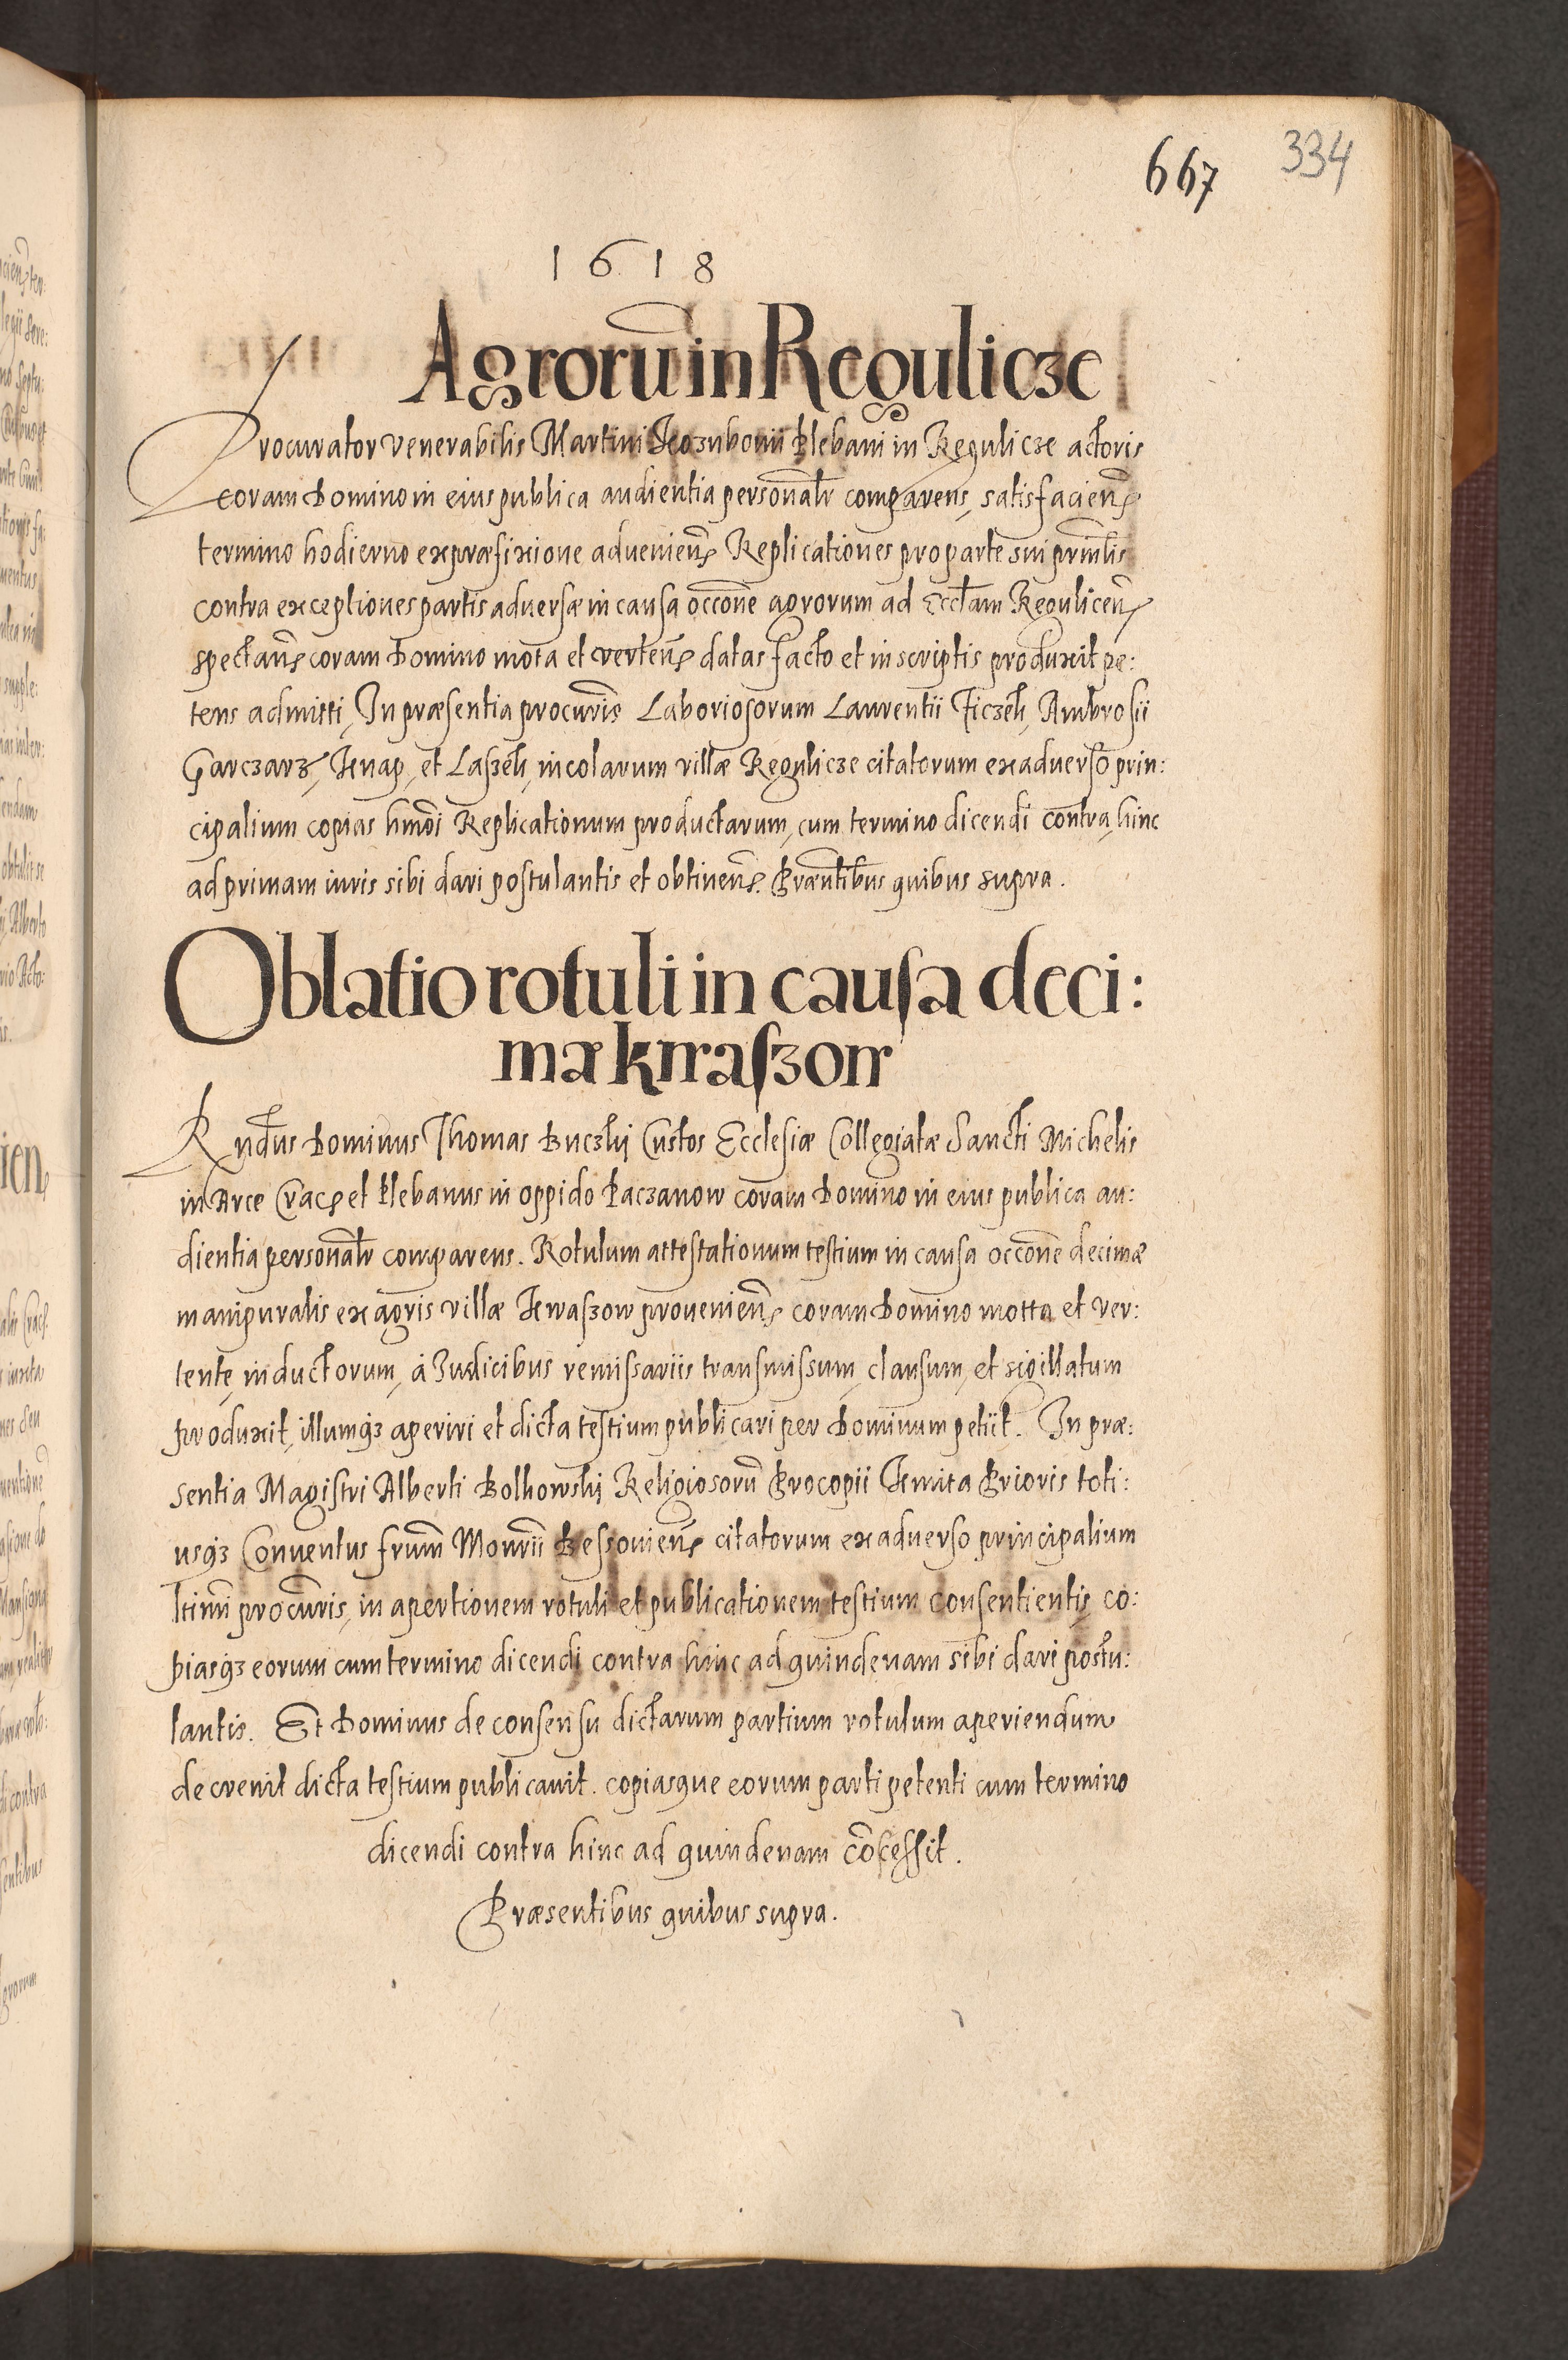 667 334
1618
Agrorū in Regulicze
Procurator venerabilis Martini Plebani in Regulicze actoris
coram Domino in eius publica audientia personalr comparens, satisfaciens
termino hodierno ex præfixione adveniens Replicationes pro parte sui prinlis
contra exceptiones partis adversæ in causa occone agrorum ad Ecclam Regulicens
spectans coram Domino mota et vertens datas facto et in scriptis produxit pe:
tens admitti, In præsentia procuris Laboriosorum Laurentii Ficzek, Ambrosii
Garczarz, Knap, et Laszek, incolarum villæ Regulicze citatorum ex adverso prin:
cipalium copias hmoi Replicationum productarum, cum termino dicendi contra, hinc
ad primam iuris sibi dari postulantis et obtinens. Præntibus quibus supra.
Oblatio rotuli in causa deci:
mæ kwaszow
Rndus Dominus Thomas Buczki Custos Ecclesiæ Collegiatæ Sancti Michelis
in Arce Crac, et Plebanus in oppido Paczanow coram Domino in eius publica au:
dientia personalr comparens. Rotulum attestationum testium in causa occone decimæ
manipuralis ex agris villæ Kwaszow proveniens coram Domino motta et ver:
tente, inductorum, à Iudicibus remissariis transmissum, clausum, et sigillatum
produxit, illumqз aperiri et dicta testium publicari per Dominum petiit. In præ:
sentia Magistri Alberti Bolkowski Religiosorū Procopii Kmita Prioris toti:
usqз Conventus frum Monrii citatorum ex adverso principalium
ltimi procuris, in apertionem rotuli et publicationem testium consentientis, co:
piasqз eorum cum termino dicendi contra hinc ad quindenam sibi dari postu:
lantis. Et Dominus de consensu dictarum partium rotulum aperiendum
decrevit dicta testium publicavit. copiasque eorum parti petenti cum termino
dicendi contra hinc ad quindenam cōcessit.
Præsentibus quibus supra.